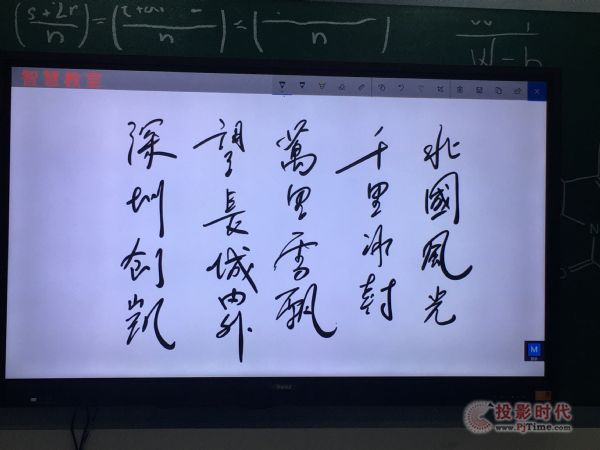 智慧教室
北國風光
千里冰封
萬里雪飄
望長城內外
深圳創凱
M
投影时代
www.PjTime.com